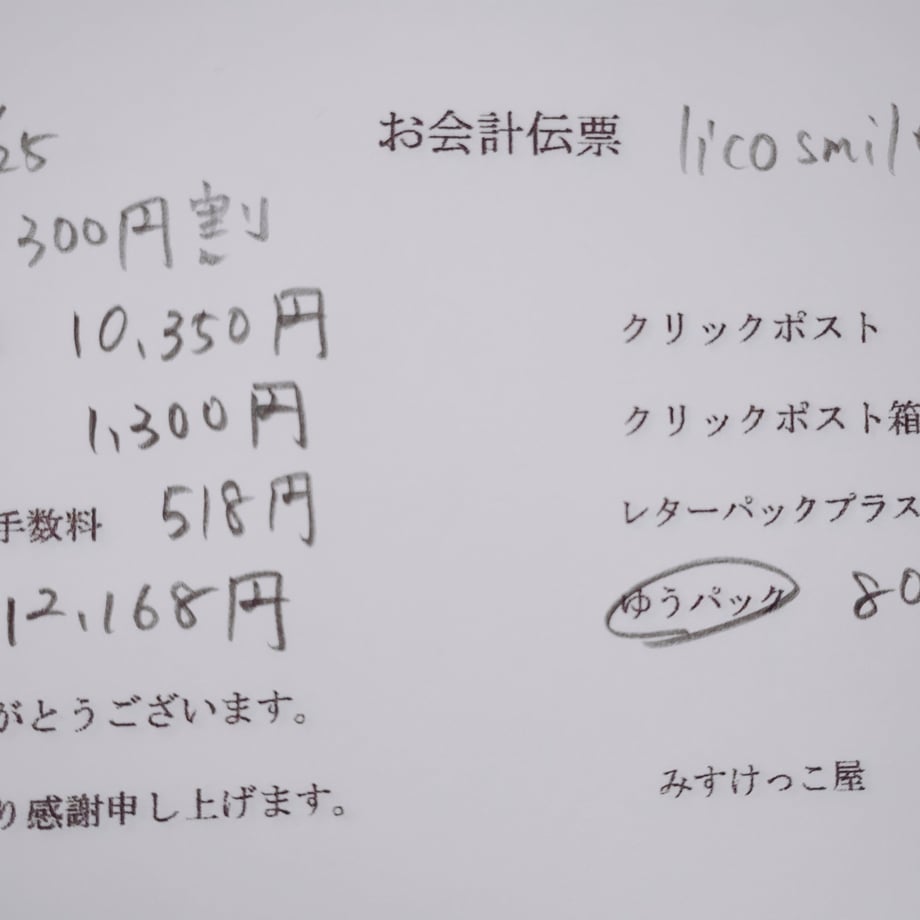 25
お会計伝票 licosmil
300円割
10,350円
クリックポスト
1,300円
クリックポスト箱
手数料 518円
レターパックプラス
12,168円
ゆうパック 80
がとうございます。
り感謝申し上げます。
みすけっこ屋